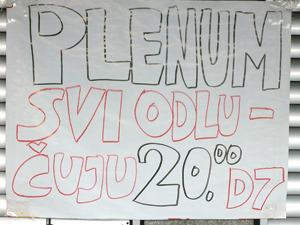 PLENUM
SVI ODLU-
ČUJU 20.00 D7